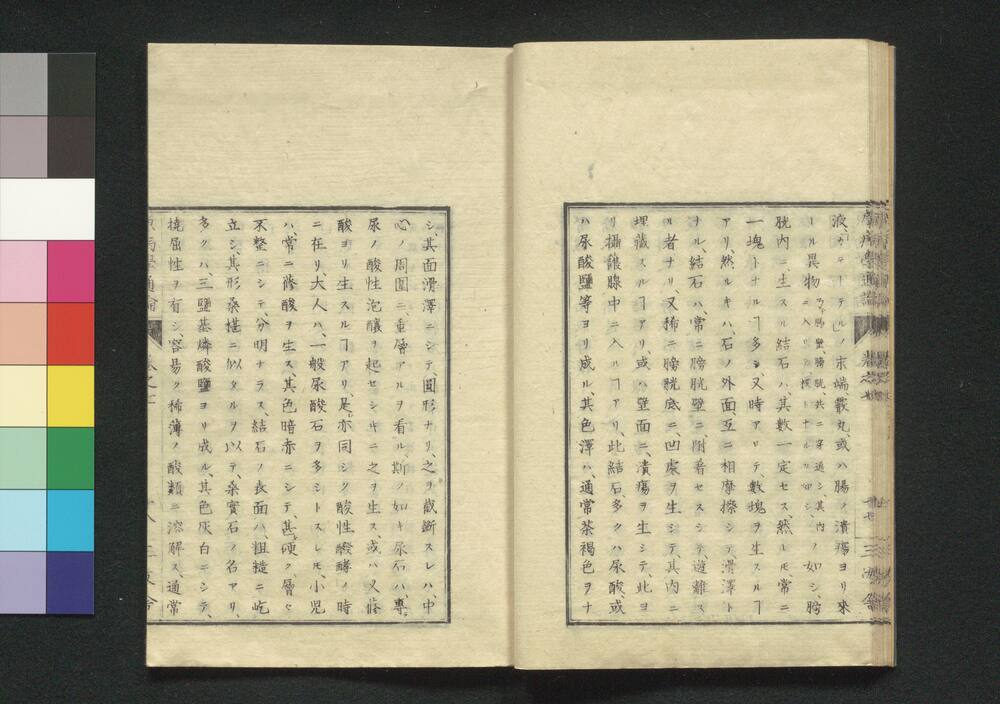 液「カテーテル」ノ末端、霰丸、或ハ腸ノ潰瘍ヨリ來
ール異物乃チ腸壁膀胱共ニ穿通シ、其內ノ物ニ入ルノ如シ、膀
胱內ニ生スル結石ハ、其數一定セス、然レモ常ニ
一塊トナルヿ多シ、又時アリテ、數塊ヲ生スルヿ
アリ、然ルキハ、石ノ外面、互ニ相摩擦シテ、滑澤ト
ナル、結石ハ、常ニ膀胱壁ニ、附着セスシテ、遊離ス
ル者ナリ、又稀ニ膀胱底ニ、凹處ヲ生シテ、其內ニ
埋藏スルヿアリ、或ハ壁面ニ、潰瘍ヲ生シテ、此ヨ
リ攝護腺中ニ入ルヿアリ、此結石、多クハ尿酸、或
ハ尿酸鹽等ヨリ成ル、其色澤ハ、通常茶褐色ヲナ
シ、其面滑澤ニシテ、圓形ナリ、之ヲ截斷スレハ、中
心ノ周圍ニ、重層アルヲ看ル、斯ノ如キ尿石ハ、專
尿ノ酸性泡釀ヲ起セシキニ之ヲ生ス、或ハ又篠
酸ヨリ生スルヿアリ、是亦同シク酸性醱酵ノ時
ニ在リ、大人ハ、一般尿酸石ヲ多シトスレモ、小兒
ハ、常ニ篠酸ヲ生ス、其色暗赤ニシテ、甚硬ク、層セ
不整ニシテ、分明ナラス、結石ノ表面ハ、粗糙ニ屹
立シ、其形桑椹ニ似タルヲ以テ、桑實石ノ名アリ、
多クハ、三鹽基燐酸鹽ヨリ成ル、其色灰白ニシテ、
撓屈性ヲ有シ、容易ク稀薄ノ酸類ニ溶解ス、通常